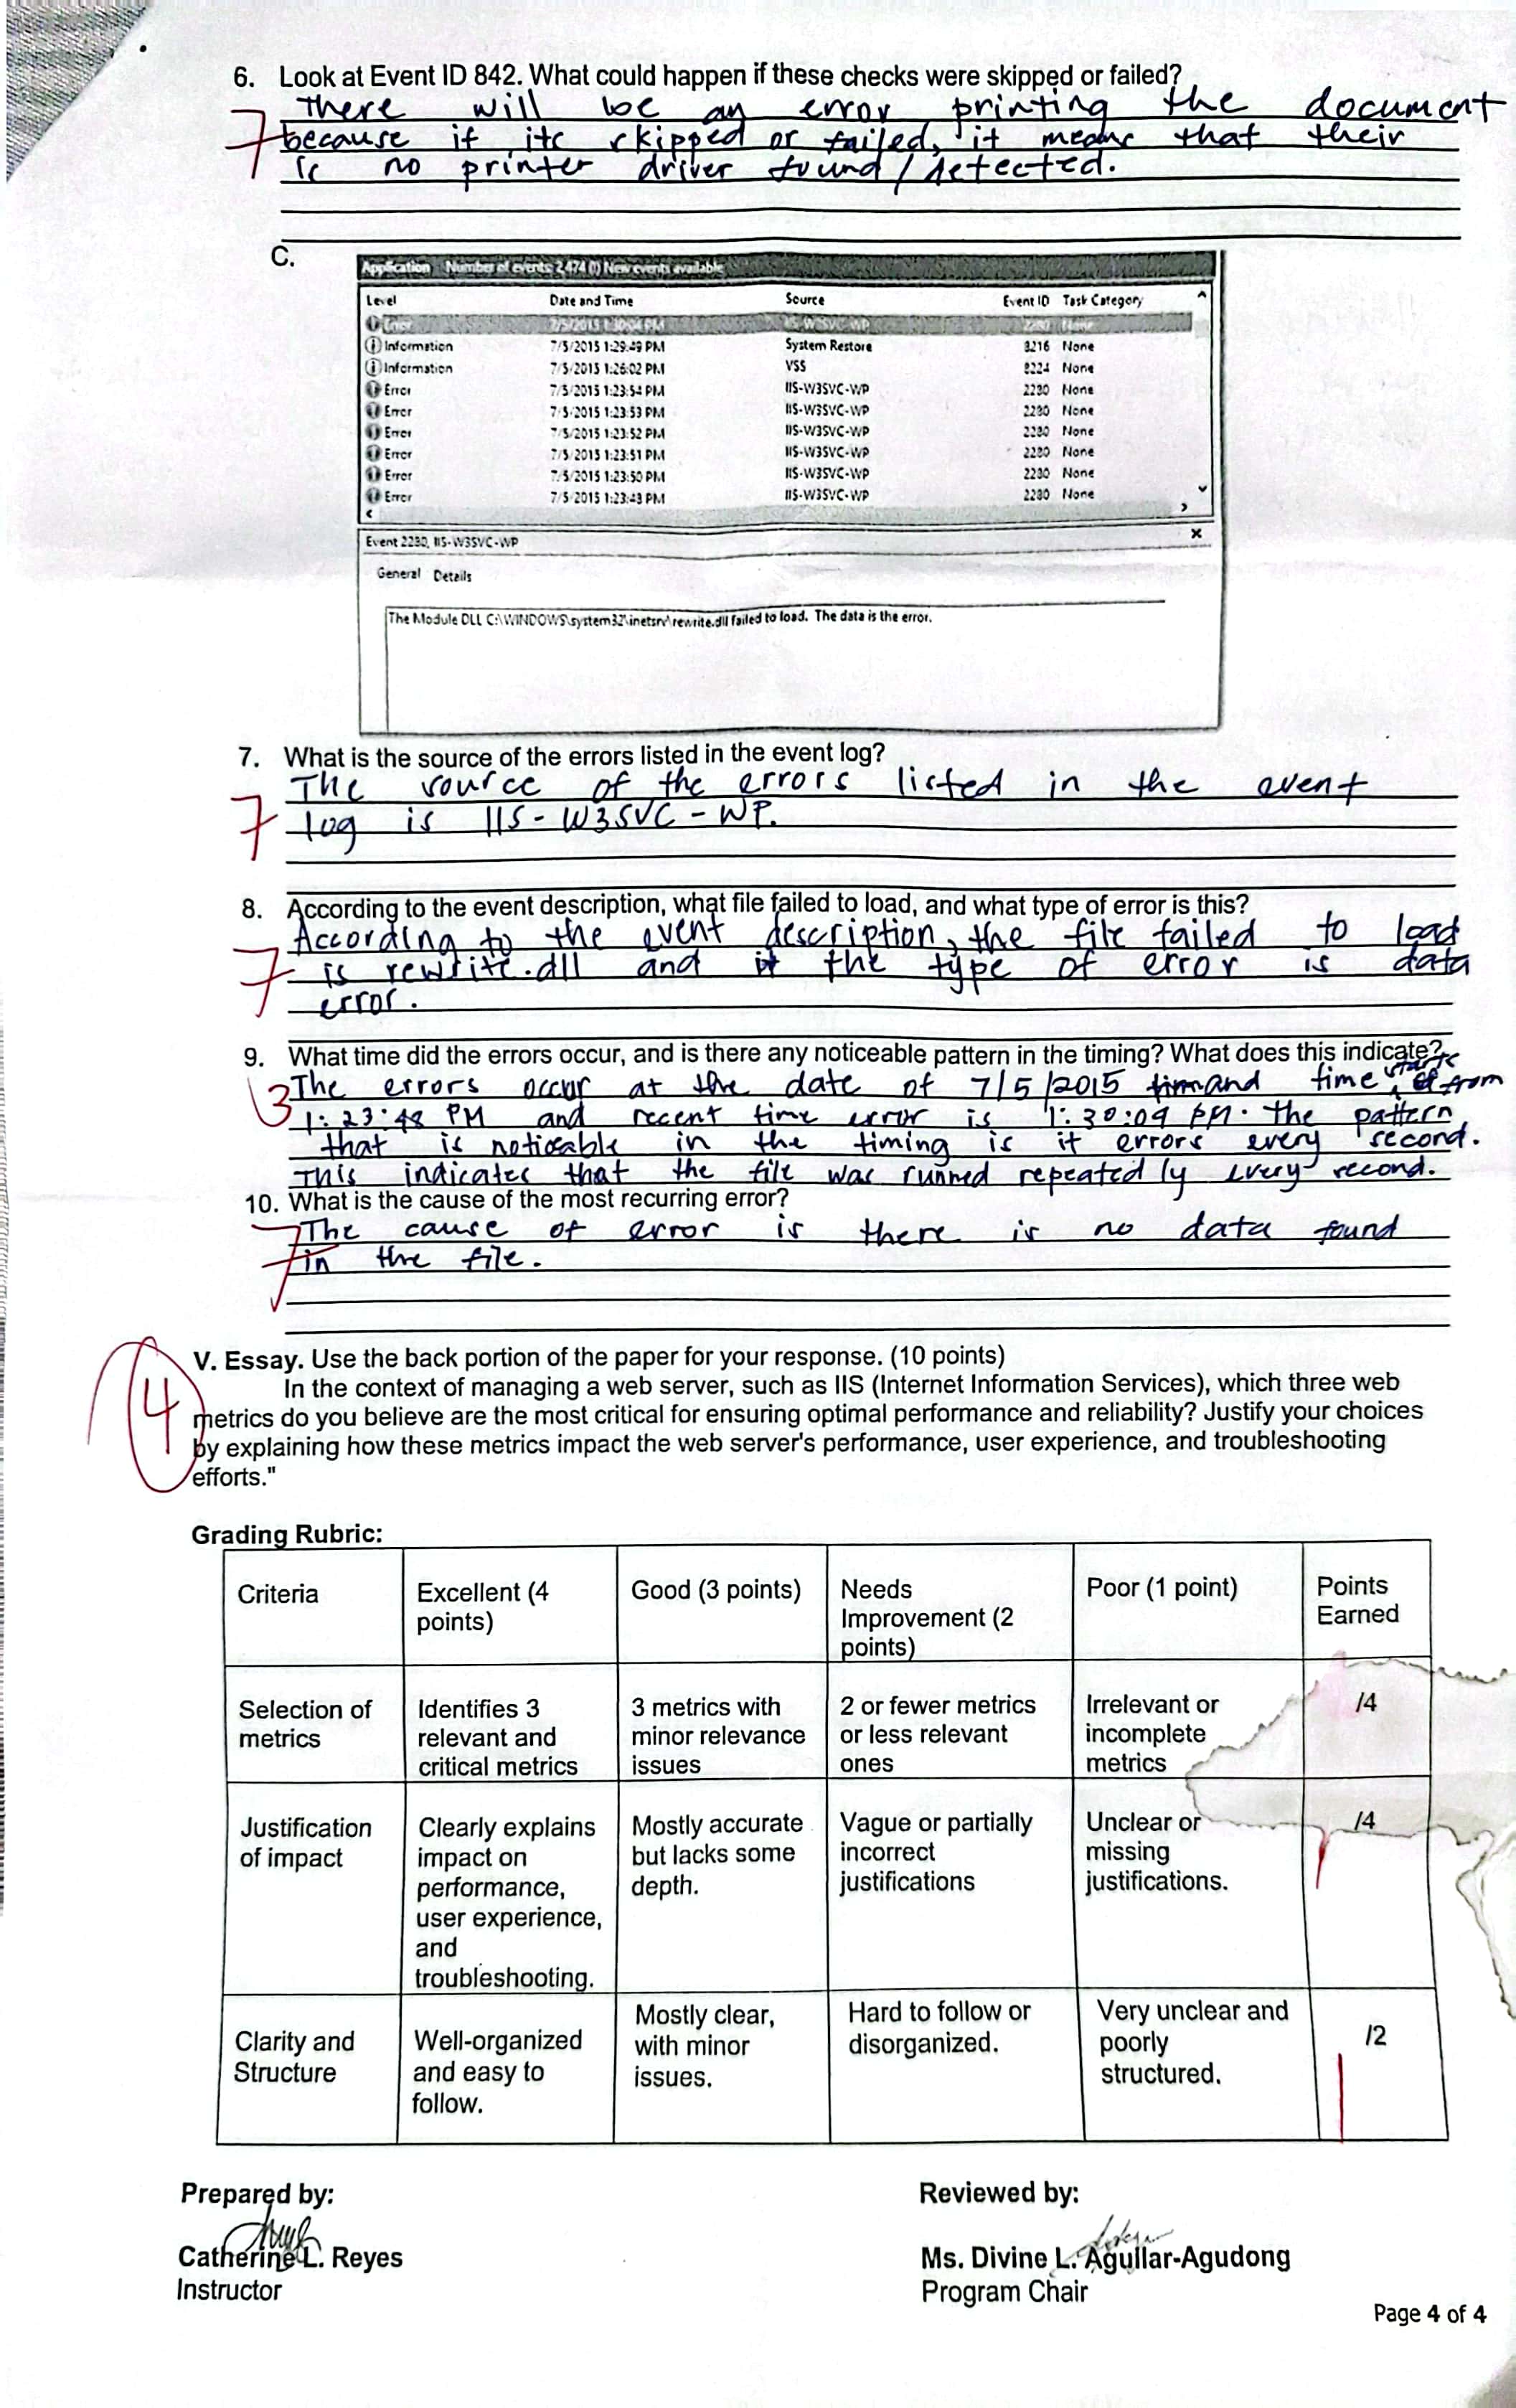 6. Look at Event ID 842. What could happen if these checks were skipped or failed?
There will be an error printing the document
7 because if its skipped or failed, it means that their
is no printer driver found / detected.
C.
Application Number of events: 2,474 (!) New events available
Level Date and Time Source Event ID Task Category
Error 7/5/2015 1:30:04 PM IIS-W3SVC-WP 2280 None
Information 7/5/2015 1:29:49 PM System Restore 8216 None
Information 7/5/2015 1:26:02 PM VSS 8224 None
Error 7/5/2015 1:23:54 PM IIS-W3SVC-WP 2280 None
Error 7/5/2015 1:23:53 PM IIS-W3SVC-WP 2280 None
Error 7/5/2015 1:23:52 PM IIS-W3SVC-WP 2280 None
Error 7/5/2015 1:23:51 PM IIS-W3SVC-WP 2280 None
Error 7/5/2015 1:23:50 PM IIS-W3SVC-WP 2280 None
Error 7/5/2015 1:23:48 PM IIS-W3SVC-WP 2280 None
Event 2280, IIS-W3SVC-WP
General Details
The Module DLL C:\WINDOWS\system32\inetsrv\rewrite.dll failed to load. The data is the error.
7. What is the source of the errors listed in the event log?
The source of the errors listed in the event
7 log is IIS-W3SVC-WP.
8. According to the event description, what file failed to load, and what type of error is this?
According to the event description, the file failed to load
7 is rewrite.dll and the type of error is data
error.
9. What time did the errors occur, and is there any noticeable pattern in the timing? What does this indicate?
3 The errors occur at the date of 7/5/2015 and time starts from
1:23:48 PM and recent time error is 1:30:09 PM. The pattern
that is noticable in the timing is it errors every second.
This indicates that the file was runned repeatedly every second.
10. What is the cause of the most recurring error?
The cause of error is there is no data found
7 in the file.
V. Essay. Use the back portion of the paper for your response. (10 points)
In the context of managing a web server, such as IIS (Internet Information Services), which three web
4 metrics do you believe are the most critical for ensuring optimal performance and reliability? Justify your choices
by explaining how these metrics impact the web server's performance, user experience, and troubleshooting
efforts."
Grading Rubric:
Criteria Excellent (4 points) Good (3 points) Needs Improvement (2 points) Poor (1 point) Points Earned
Selection of metrics Identifies 3 relevant and critical metrics 3 metrics with minor relevance issues 2 or fewer metrics or less relevant ones Irrelevant or incomplete metrics /4
Justification of impact Clearly explains impact on performance, user experience, and troubleshooting. Mostly accurate but lacks some depth. Vague or partially incorrect justifications Unclear or missing justifications. /4
Clarity and Structure Well-organized and easy to follow. Mostly clear, with minor issues. Hard to follow or disorganized. Very unclear and poorly structured. /2
Prepared by: Reviewed by:
Catherine L. Reyes Ms. Divine L. Aguilar-Agudong
Instructor Program Chair
Page 4 of 4